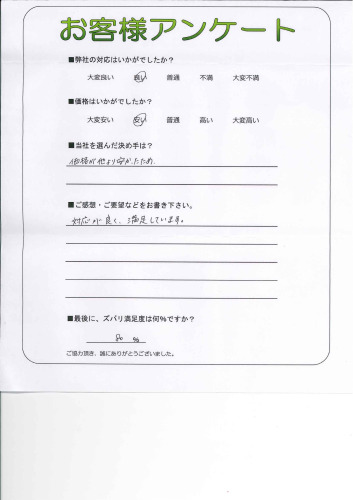 お客様アンケート
■弊社の対応はいかがでしたか？
大変良い 良い 普通 不満 大変不満
■価格はいかがでしたか？
大変安い 安い 普通 高い 大変高い
■当社を選んだ決め手は？
価格が他より安かったため。
■ご感想・ご要望などをお書き下さい。
対応が良く、満足しています。
■最後に、ズバリ満足度は何％ですか？
80 %
ご協力頂き、誠にありがとうございました。